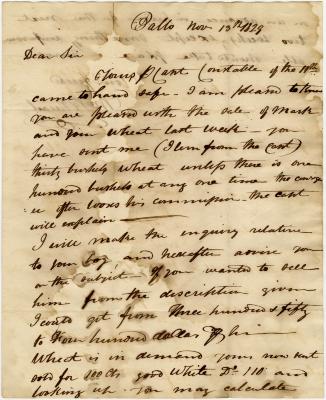 Balto Nov 13th 1829
Dear Sir
Yours p Capt Constable of the 11th
came to hand safe - I am pleased to know
you are pleased with the sale of Mark
and your wheat last week - you
have sent me (I learn from the Capt)
thirty bushels wheat unless there is one
hundred bushels at any one time the
is often looses his commission - the capt
will explain
I will make the inquiry relative
to your boy and hereafter advise you
on the subject - If you wanted to sell
him from the description given
I could get from three hundred & fifty
to four hundred dollars for him
Wheat is in demand yours now
sold for 100 cts good White Do 110 and
looking up - you may calculate